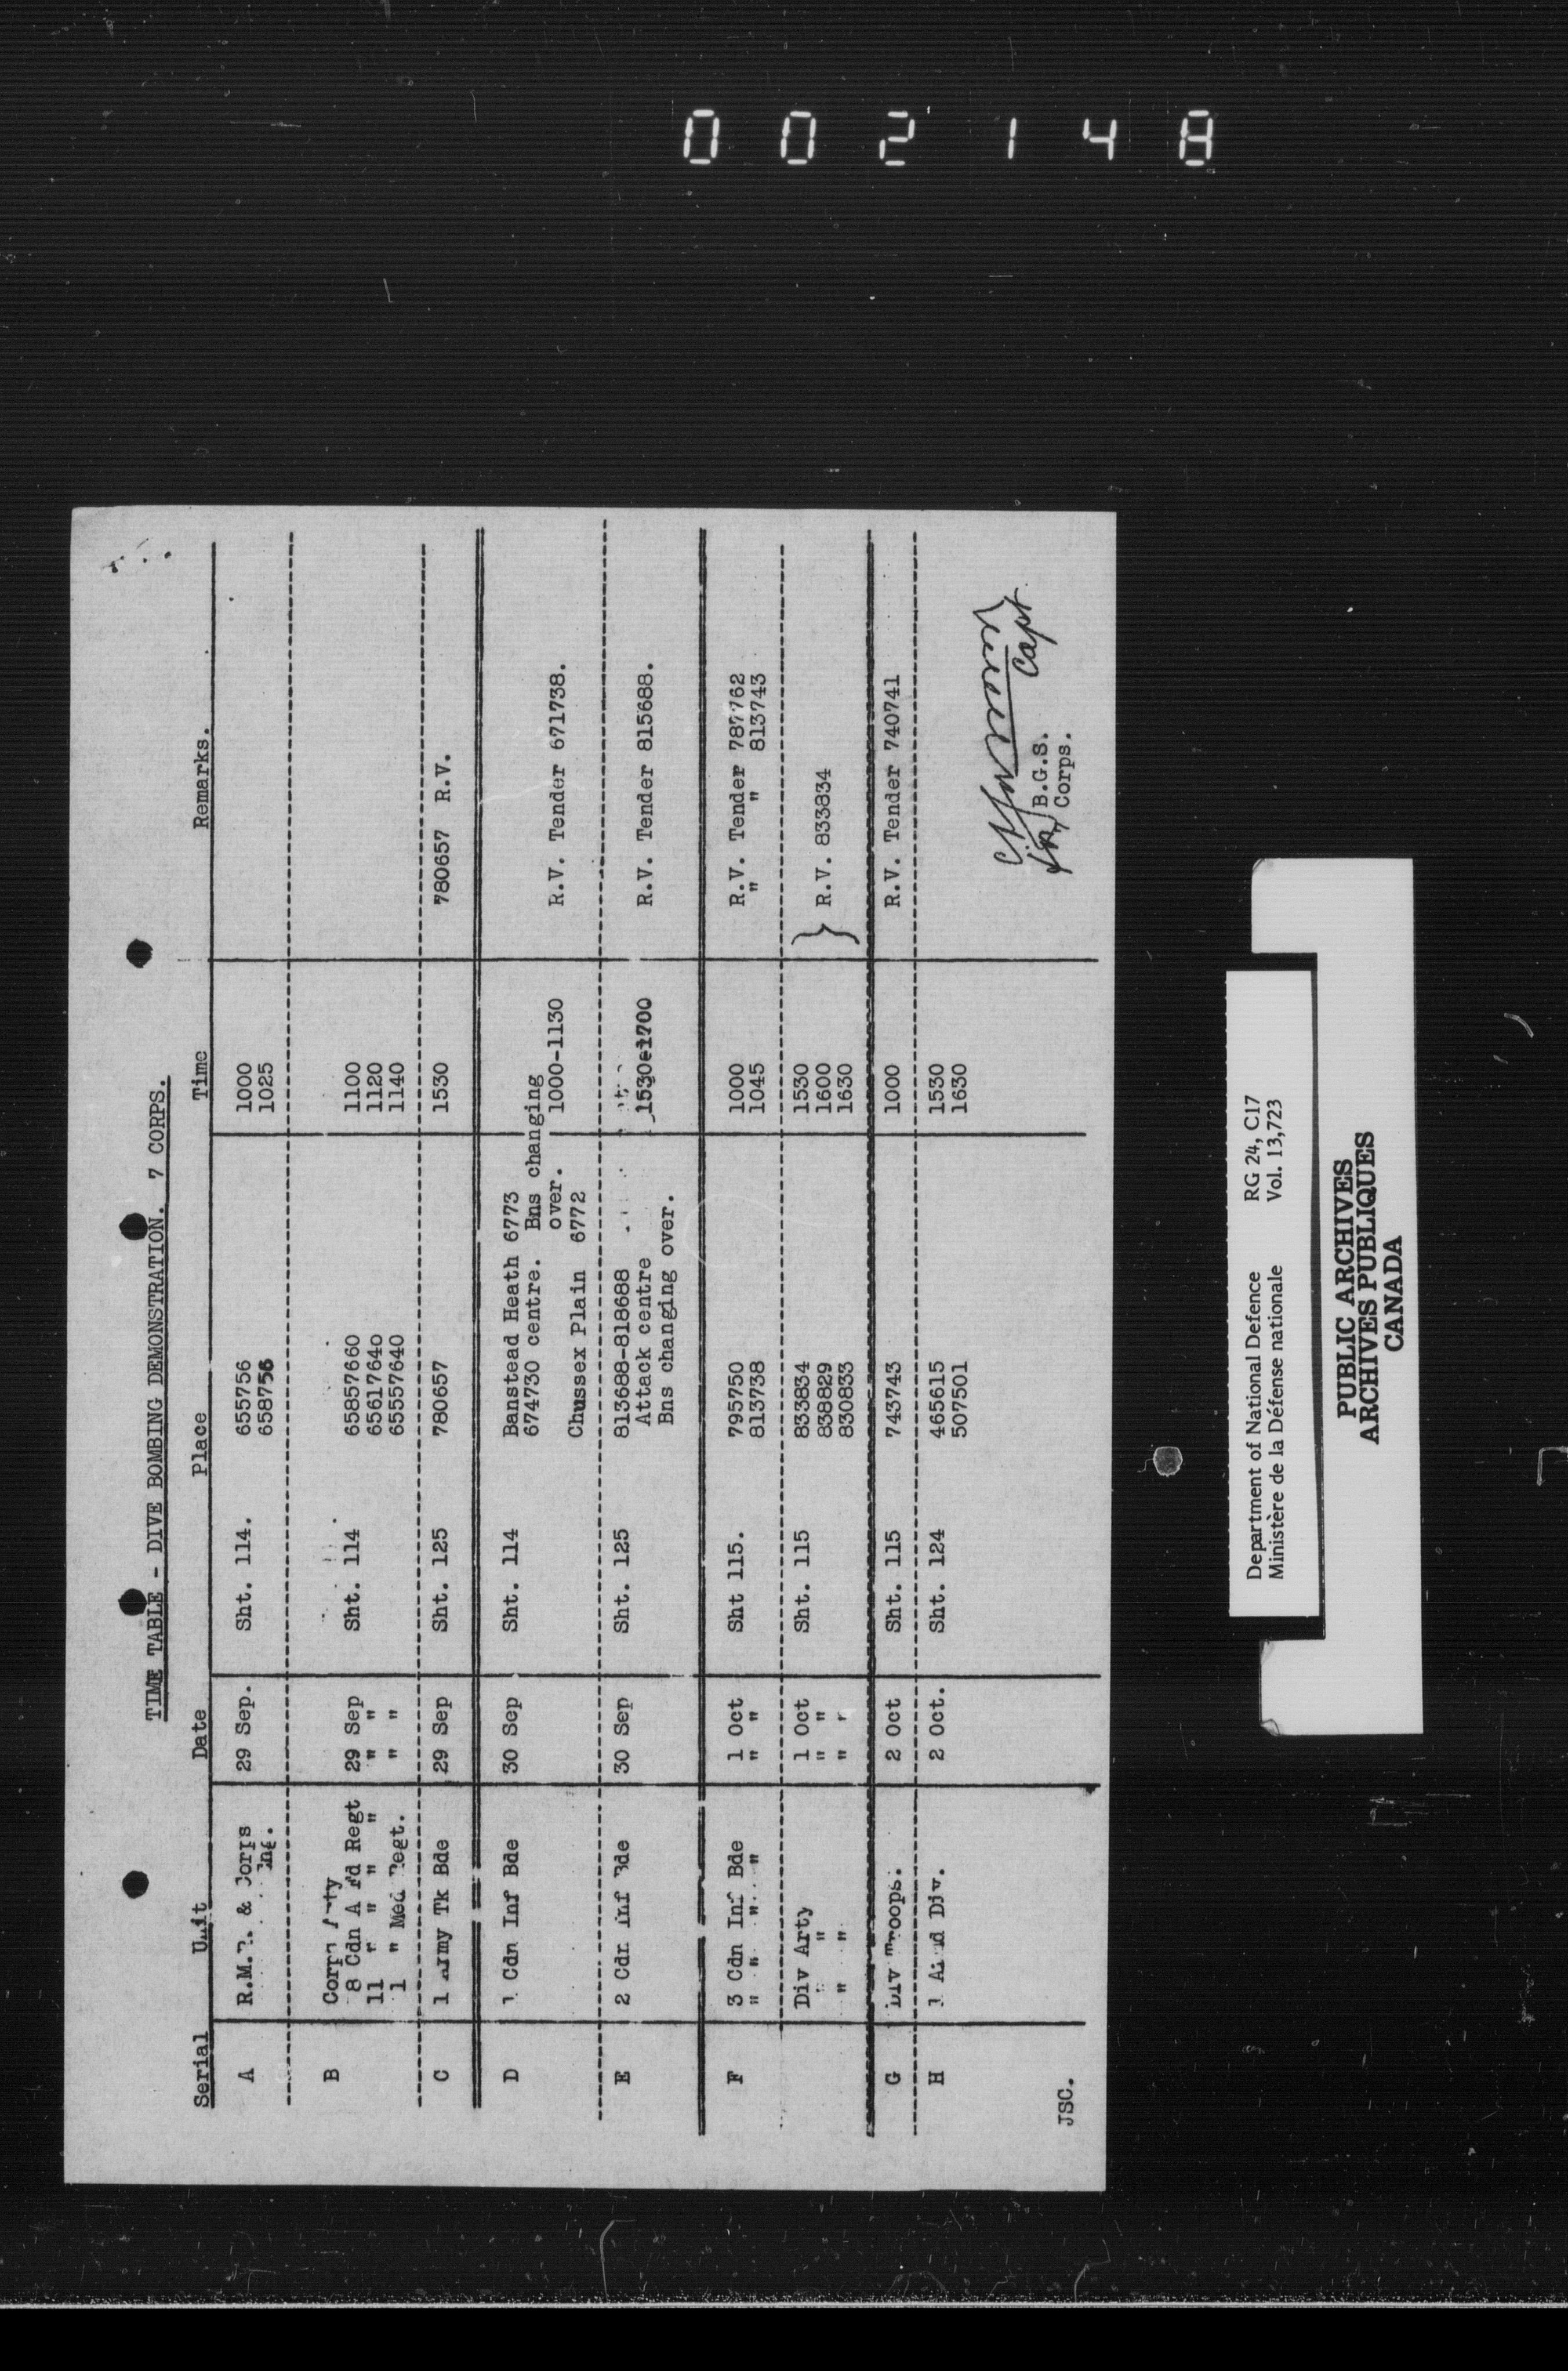 002148
TIME TABLE - DIVE BOMBING DEMONSTRATION. 7 CORPS.
Serial Unit Date Place Time Remarks.
A R.M.R. & Corps 29 Sep. Sht. 114. 655756 1000
658756 1025
B Corps Arty
8 Cdn A Fd Regt 29 Sep Sht. 114 65857660 1100
11 " " " " " " 65617640 1120
1 " Med Regt. " " 65557640 1140
C 1 Army Tk Bde 29 Sep Sht. 125 780657 1530 780657 R.V.
D 1 Cdn Inf Bde 30 Sep Sht. 114 Banstead Heath 6773
674730 centre. Bns changing
over. 1000-1130 R.V. Tender 671738.
Chussex Plain 6772
E 2 Cdn Inf Bde 30 Sep Sht. 125 813688-818688
Attack centre 1530-1700 R.V. Tender 815688.
Bns changing over.
F 3 Cdn Inf Bde 1 Oct Sht 115. 795750 1000 R.V. Tender 787762
" " " " " " 813738 1045 " " 813743
Div Arty 1 Oct Sht. 115 833834 1530
" " " 838829 1600 } R.V. 833834
" " " " 830833 1630
G Div Troops. 2 Oct Sht. 115 743743 1000 R.V. Tender 740741
H 2 Oct. Sht. 124 465615 1530
Div. 507501 1630
Capt
for B.G.S.
Corps.
JSC.
Department of National Defence RG 24, C17
Ministère de la Défense nationale Vol. 13,723
PUBLIC ARCHIVES
ARCHIVES PUBLIQUES
CANADA